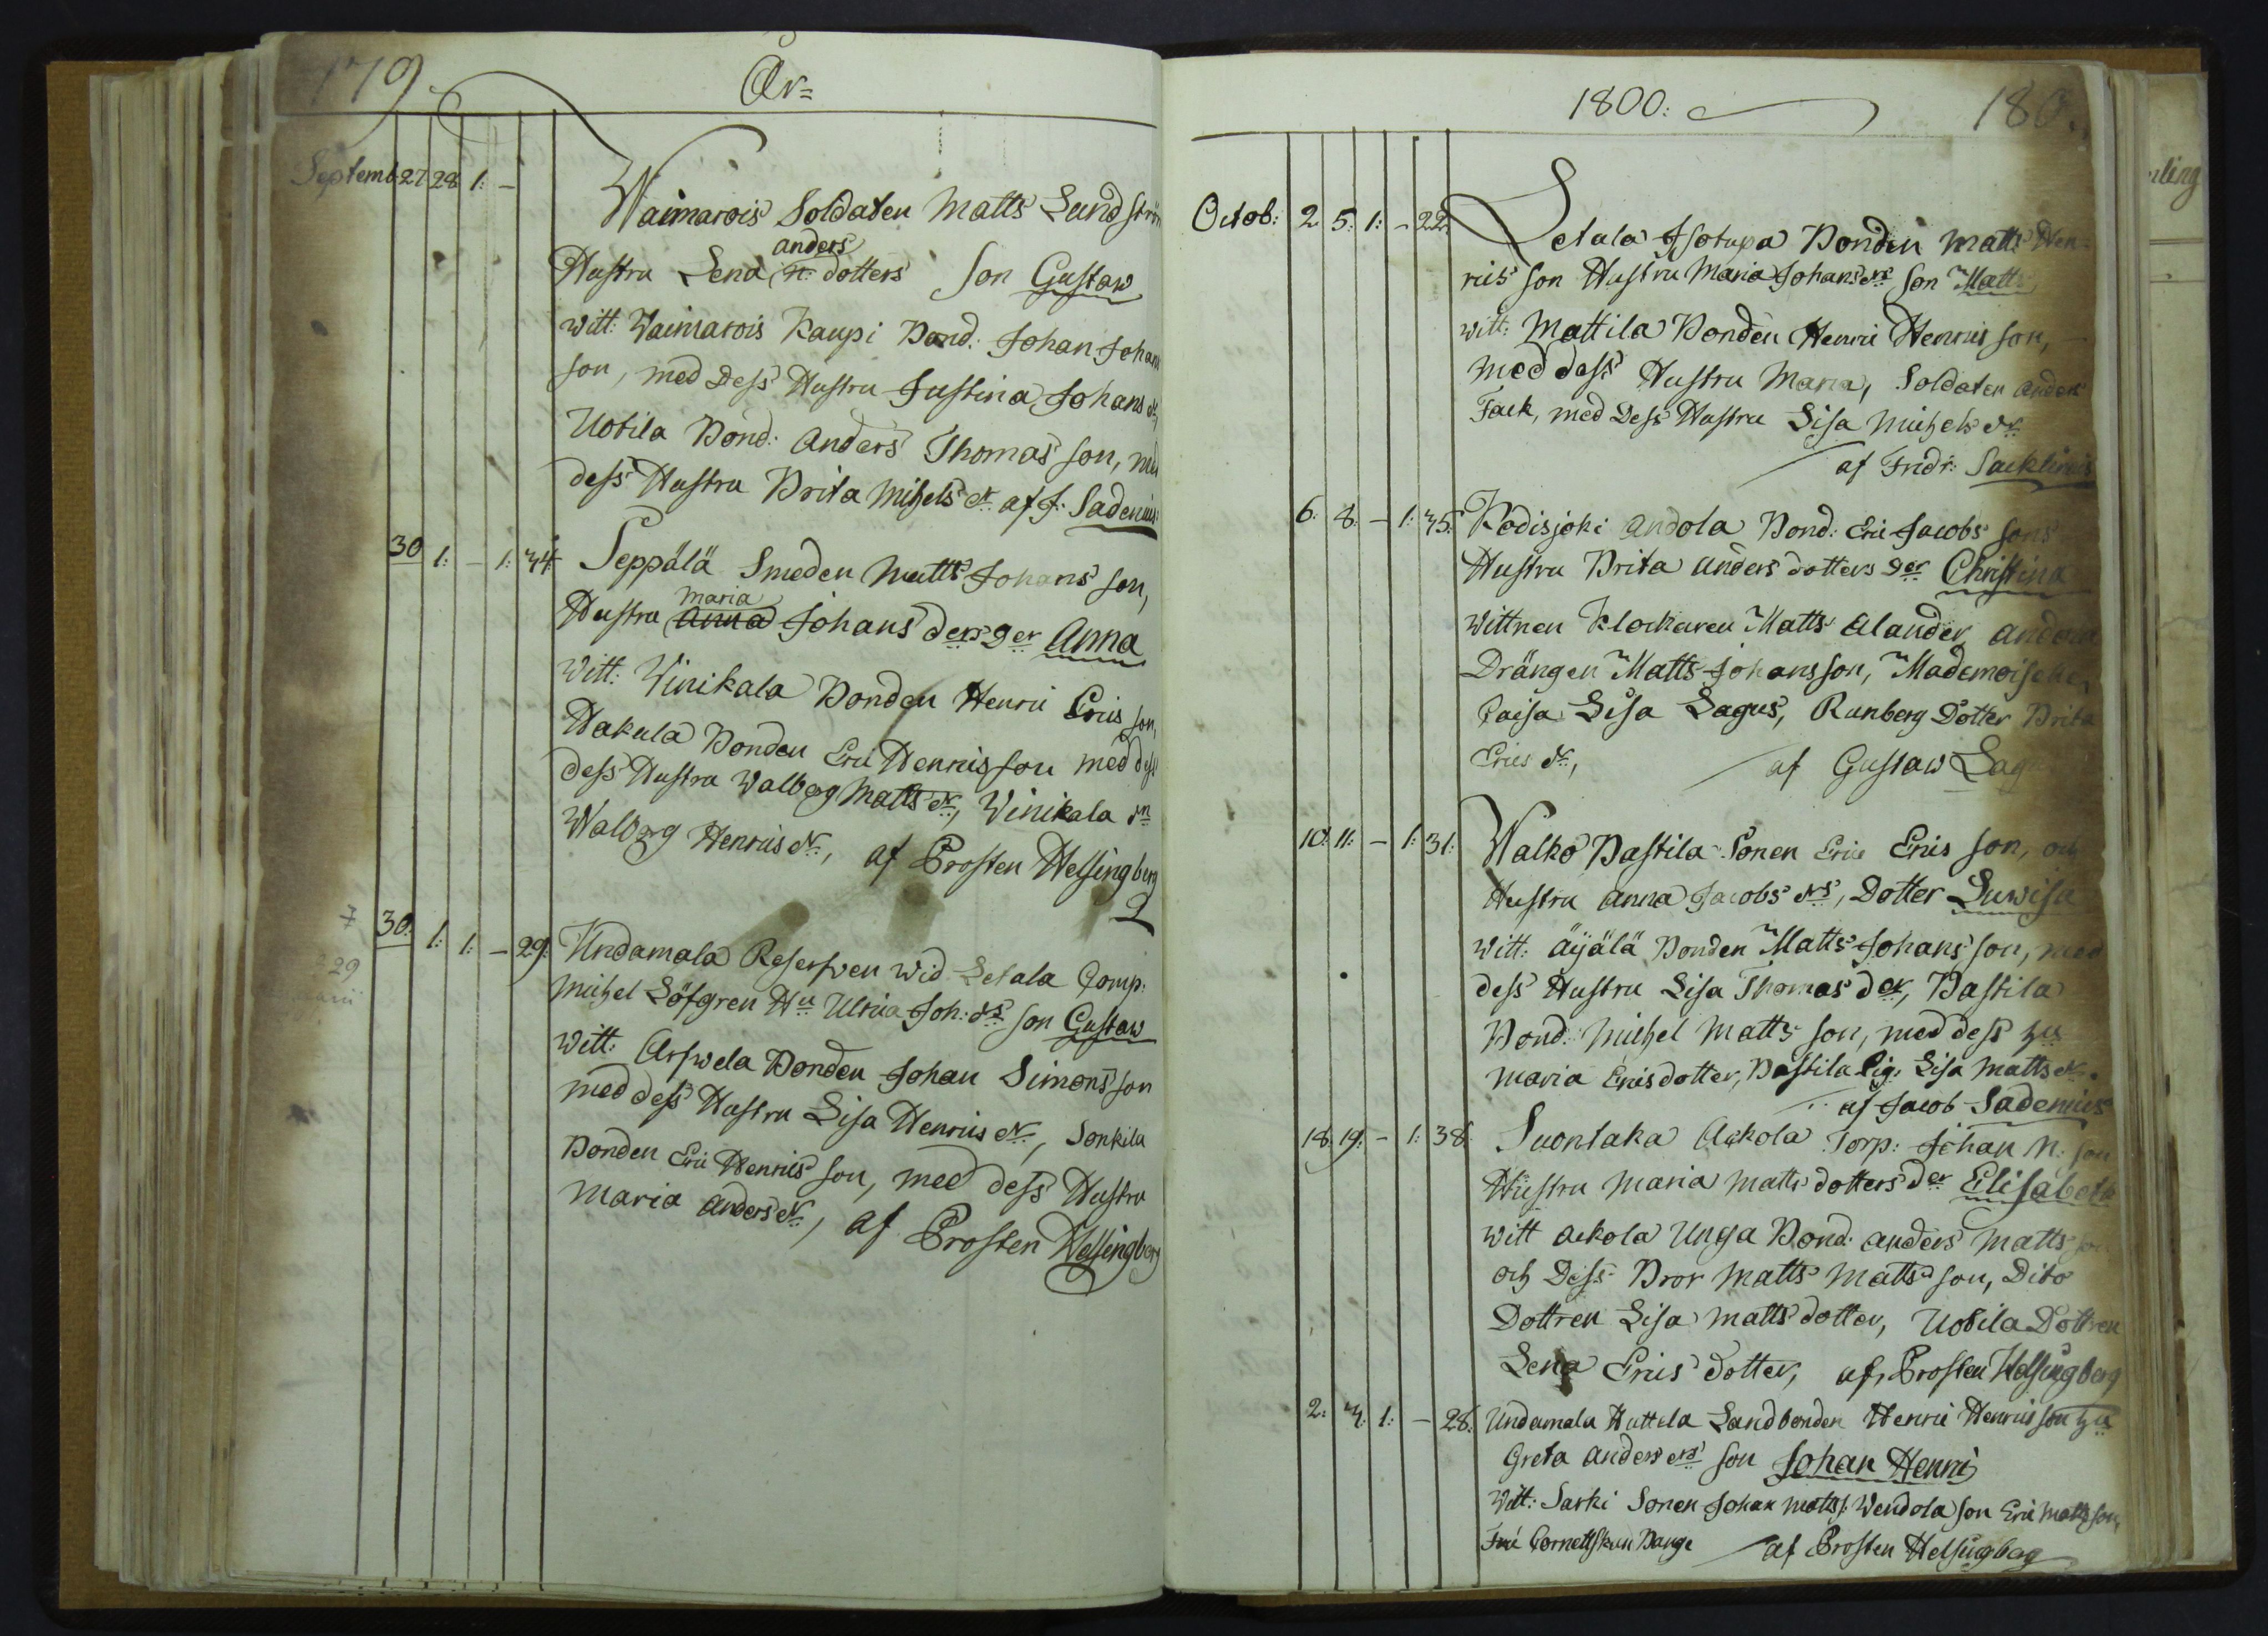 179.
År=
Septemb. 27 28 1: -
Waimarois Soldaten Matts Lundström
anders
Hustru Lena N: dotters Son Gustaw
witt: Waimarois Kaupi Bond: Johan Johan
son, med Dess Hustru Justina Johans dr,
Uotila Bond: Anders Thomas son, med
dess Hustru Brita Mihels dr. af J: Sadenius
30 1: - 1: 34 Seppälä Smeden Matts Johans son,
maria
Hustru Anna Johans ders Der Anna
Witt: Vinikala Bonden Henric Erics son,
Hakula Bonden Eric Henrics son med dess
dess Hustru Walborg Matts dr, Vinikala dn
Walborg Henrics dr, af Prosten Helsingberg
30. 1: 1: - 29: Undamala Reserfven wid Letala Comp:
Michel Löfgren Hu Ulrica Joh: ds son Gustaw
witt: Arfwela Bonden Johan Simons son
med dess Hustru Lisa Henrics dr, Sonkila
Bonden Eric Henrics son, med dess Hustru
Maria Anders dr, af Prosten Helsingberg
1800:
180.
Octob: 2 5: 1: - 22. Letala Isotupa Bonden Matts Hen-
rics son Hustru Maria Johans drs son Matts,
witt: Mattila Bonden Henric Henrics son,
med dess Hustru Maria, Soldaten Anders
Fack, med Dess Hustru Lisa Michels dr
af Fridr: Sacklinius
6: 8: - 1: 35. Kodisjoki Andola Bond: Eric Jacobs sons
Hustru Brita Anders dotters Der Christina
Wittnen Klockaren Matts Alander, Andola
Drängen Matts Johansson, Mademoiselle,
Caisa Lisa Lagus, Runberg Dotter Brita
Erics dr, af Gustaw Lagus
10: 11: - 1: 31: Walko Pastila Sonen Eric Erics son, och
Hustru Anna Jacobs drs, Dotter Luwisa
Witt: Äijälä Bonden Matts Johans son, med
dess Hustru Lisa Thomas der, Pastila
Bond: Michel Matts son, med dess hu
Maria Ericsdotter, Pastila Pig. Lisa Matts dr.
af Jacob Sadenius
18 19: - 1: 38. Suontaka Ackola Torp: Johan M: son
Hustru Maria Matts dotters der Elisabeth
Witt Ackola Unga Bond: Anders Matts son
och Dess Bror Matts Matts son, Dito
Dottren Lisa Matts dotter, Uotila Dottren
Lena Erics dotter, af Prosten Helsingberg
2: 3: 1: - 28: Undamala Huttela Landbonden Henric Henrics son hu
Greta Anders drs son Johan Henric
Witt: Sarki Sonen Johan Matts s. Wendola son Eric Matts son,
Fru Cornettskan Bange af Prosten Helsingberg